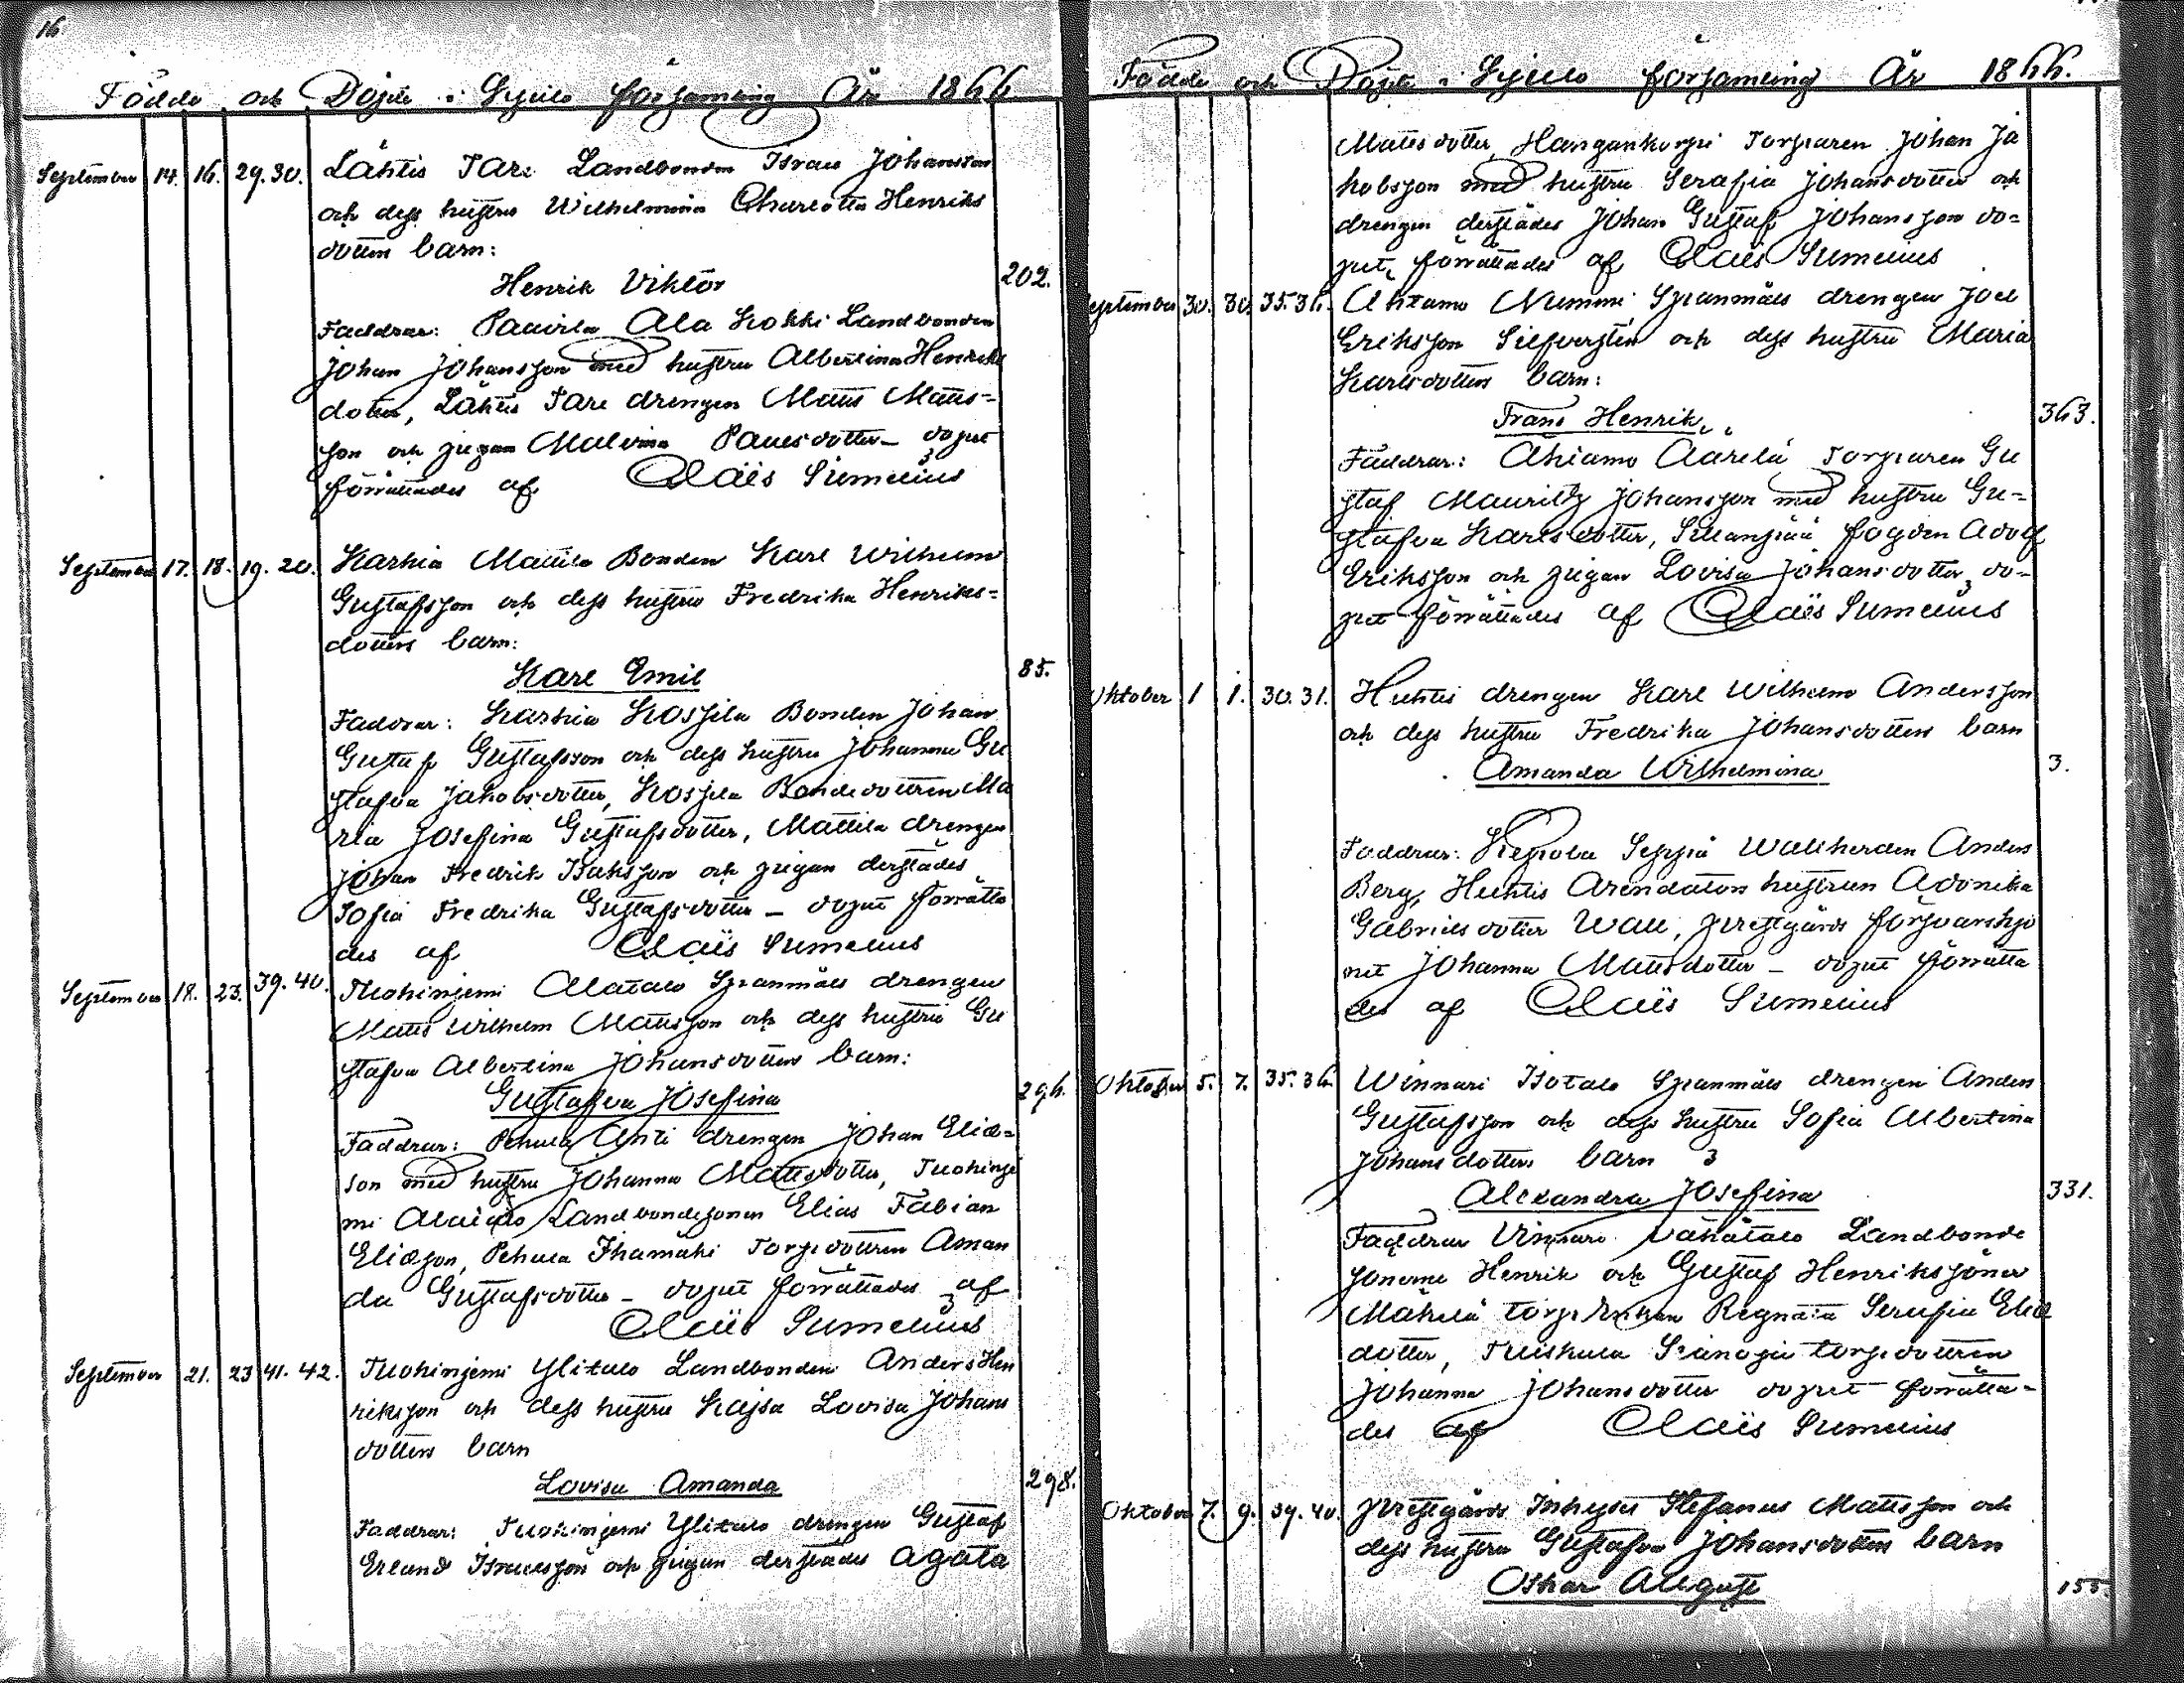 16.
Födde och Döpte i Kjulo församling År 1866
September 14. 16. 29. 30. Lähtis Tare Landbonden Israel Johansson
och dess hustru Wilhelmina Charlotta Henriks
dotters barn:
Henrik Viktor 202.
Faddrar: Paavila Ala Kokki Landbonden
Johan Johansson med hustru Albertina Henriks
dotter, Lähtis Tare drengen Matts Matts=
son och pigan Malvina Paulsdotter – dopet
förrättades af Claës Sumelius
September 17. 18. 19. 20. Karhia Mattila Bonden Karl Wilhelm
Gustafsson och dess hustru Fredrika Henriks=
dotters barn:
Karl Emil 85.
Faddrar: Karhia Kossila Bonden Johan
Gustaf Gustafsson och dess hustru Johanna Gu
stafva Jakobsdotter, Kossila Bondedottren Ma
ria Josefina Gustafsdotter, Mattila drengen
Johan Fredrik Isaksson och pigan derstädes
Sofia Fredrika Gustafsdotter – dopet förrätta
des af Claës Sumelius
September 18. 23. 39. 40. Tuohiniemi Alatalo Spanmåls drengen
Matts Wilhelm Mattsson och dess hustru Gu
stafva Albertina Johansdotters barn:
Gustafva Josefina 296.
Faddrar: Pehula Anti drengen Johan Elias=
son med hustru Johanna Mattsdotter, Tuohinie
mi Alatalo Landbondesonen Elias Fabian
Eliasson, Pehula Ihamäki Torpdottren Aman
da Gustafsdotter – dopet förrättades af
Claës Sumelius
September 21. 23 41. 42. Tuohiniemi Ylitalo Landbonden Anders Hen
riksson och dess hustru Kajsa Lovisa Johans
dotters barn
Lovisa Amanda 298.
Faddrar: Tuohiniemi Ylitalo drengen Gustaf
Erland Israelsson och pigan derstädes Agata
Födde och Döpte i Kjulo församling År 1866.
Matts dotter, Hangankorpi Torparen Johan Ja
kobsson med hustru Serafia Johansdotter och
drengen derstädes Johan Gustaf Johansson do=
pet, förrättades af Claës Sumelius
September 30. 30. 35. 36. Ahtamo Nummi Spanmåls drengen Joel
Eriksson Silfversten och dess hustru Maria
Karlsdotters barn:
Frans Henrik 363.
Faddrar: Ahtamo Aarela Torparen Gu
staf Mauritz Johansson med hustru Gu=
stafva Karlsdotter, fogden Adolf
Eriksson och pigan Lovisa Johansdotter, do=
pet förrättades af Claës Sumelius
Oktober 1 1. 30. 31. Huhtis drengen Karl Wilhelm Andersson
och dess hustru Fredrika Johansdotters barn
Amanda Wilhelmina 3.
Faddrar: Kepola Seppä Wallherden Anders
Berg, Huhtis Arendators hustrun Adonika
Gabrielsdotter Wall, prestgårds
Johanna Mattsdotter – dopet förrätta
des af Claës Sumelius
Oktober 5. 7. 35. 36. Winnari Isotalo Spanmåls drengen Anders
Gustafsson och dess hustru Sofia Albertina
Johansdotters barn
Alexandra Josefina 331.
Faddrar Vinnari Vähätalo Landbonde
sönerne Henrik och Gustaf Henrikssöner
Mäkelä torp enkan Regina Serafia Elias
dotter, Tuiskula torpdottren
Johanna Johansdotter dopet förrätta=
des af Claës Sumelius
Oktober 7. 9. 39. 40. prestgårds Inhyses Stefanus Mattsson och
dess hustru Gustafva Johansdotters barn
Oskar August 155.